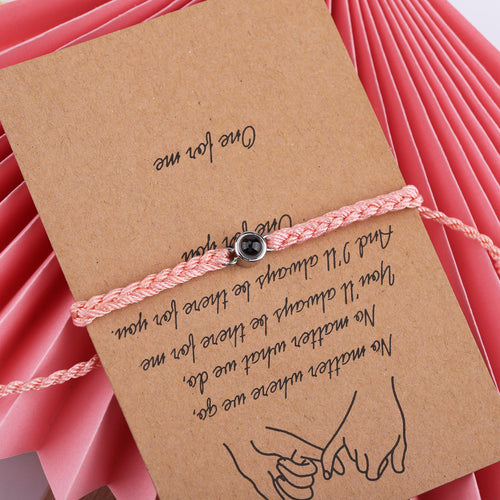 No matter where we go,
No matter what we do,
You'll always be there for me
And I'll always be there for you.
One for you
One for me